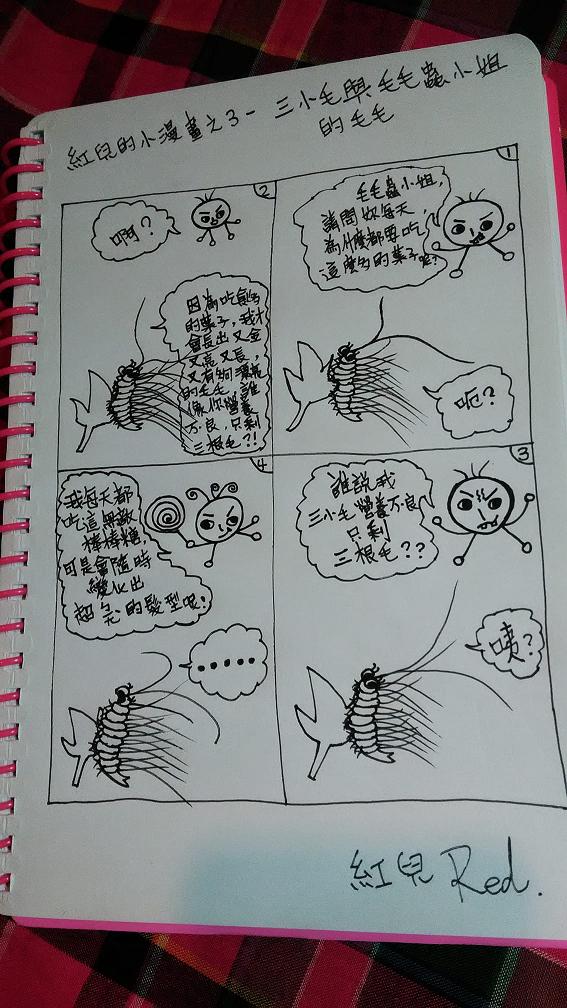 紅兒的小漫畫之3- 三小毛與毛毛蟲小姐
的毛毛
1
毛毛蟲小姐,
請問妳每天
為什麼都要吃
這麼多的葉子呢?
呃?
2
啊?
因為吃良多
的葉子,我才
會長出又金
又亮又長,
又有夠漂亮
的毛毛,誰
像你營養
不良,只剩
三根毛?!
3
誰說我
三小毛營養不良
只剩
三根毛??
咦?
4
我每天都
吃這無敵
棒棒糖,
可是會隨時
變化出
超ㄅㄧㄤˋ的髮型呢!
......
紅兒 Red.